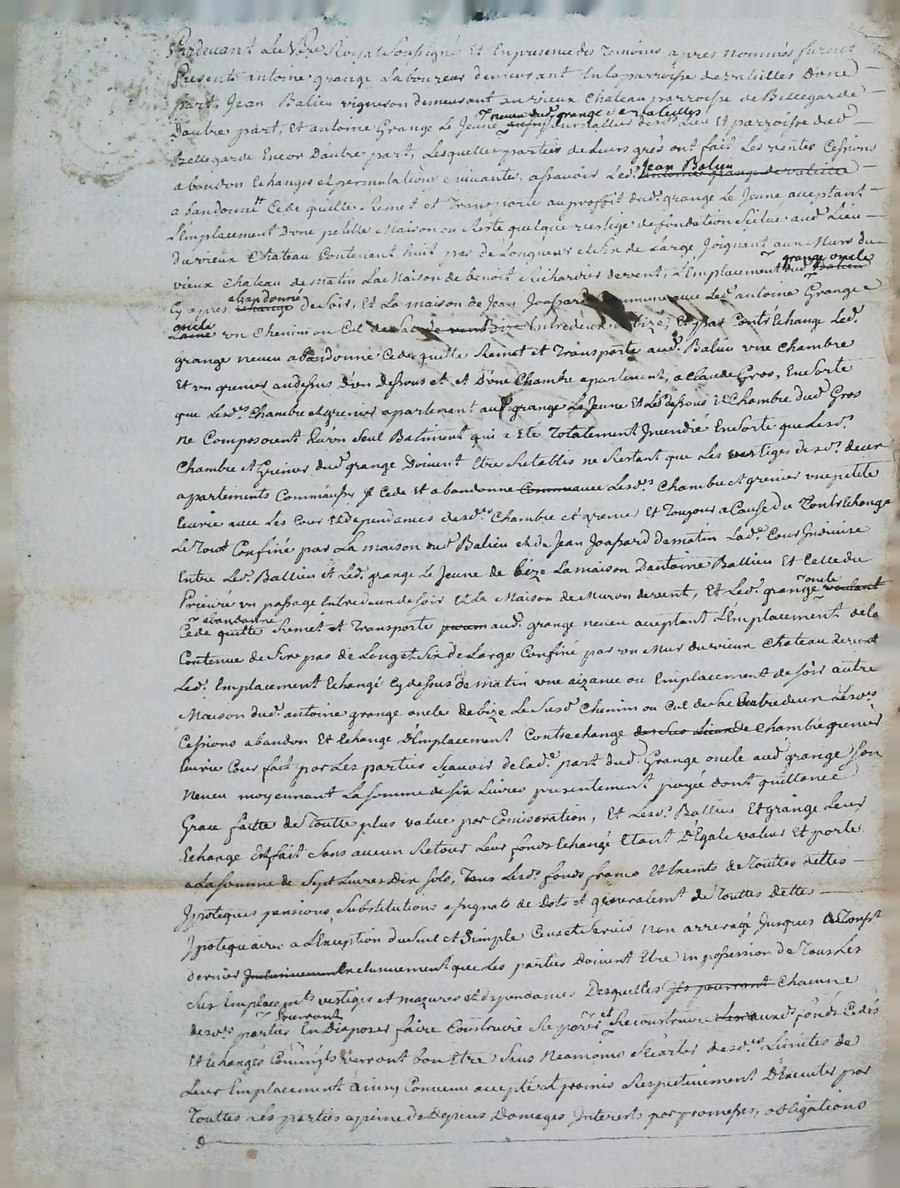 Pardevant Le Nre Royal Soussigné Et En presence des Temoins apres Nommés furent
Presents antoine grange Laboureur demeurant En la parroisse de valeilles Dune
part, Jean Balieu vigneron demeurant au vieux Chateau parroisse de Bellegarde
neveu dud. grange de valeilles
Dautre part, Et antoine Grange Le Jeune journallier desd. Lieu Et parroisse de
Bellegarde Encor Dautre part, Lesquelles parties de Leurs gres ont fait Les ventes Cessions
Jean Balieu
abandon Echanges et permutations suivantes, assavoir Led. antoine grange de valeille
abandonne Cede quitte Remet et Transporte au proffit dud. grange Le Jeune acceptant
L'Emplacement D'une petitte Maison ou Reste quelque vestige de fondation Scitue aud. Lieu
du vieux Chateau Contenant huit pas de Longueur et Six de Large Joignant aux Murs du
grange oncle
vieux Chateau de matin La Maison de benoit Richarier de vent, L'Emplacement dud. Balieu
abandonné
Cy apres Echangé de soir, Et La maison de Jean Joassard Commune avec Led. antoine Grange
oncle
Lainé un Chemin ou Cul de Sac de vent Entredeux de bize, Et par Contr'Echange Led.
grange neveu abandonne Cede quitte Remet et Transporte aud. Balieu une Chambre
Et un grenier audessus D'un Dessous et D'une Chambre apartenent, a Claude Gros, En sorte
que Lesd. Chambre et grenier apartenant aud. grange Le Jeune Et Led. dessous et Chambre dud. Gros
ne Composoient qu'un Seul Batiment qui a Eté Totalement Incendié En sorte que Lesd.
Chambre et Grenier dud. grange Doivent Etre Retablis ne Restant que Les vestiges desd. deux
apartements Comm'aussy Il Cede Et abandonne Comme avec Lesd. Chambre et grenier une petite
Ecurie avec Les Cour Et dependances desd. Chambre et grenier Et Toujour a Cause du Contr'Echange
Le Tout Confiné par La maison dud. Balieu et de Jean Joassard de matin Lad. Cour Indivise
Entre Led. Ballieu et Led. grange Le Jeune de bize La maison D'antoine Ballieu Et Celle du
oncle
Prieuré un passage Entredeux de soir Et La Maison de Muron de vent, Et Led. grange voulant
abandonne
Cede quitte Remet et Transporte aud. grange neveu acceptant L'Emplacement de la
Contenue de Six pas de Long et Six de Large Confiné par un Mur du vieux Chateau de vent
Led. Emplacement Echangé Cy dessus de matin une aizance ou Emplacement de soir autre
Maison dud. antoine grange oncle de bize Le Susd. Chemin ou Cul de Sac Entredeux Lesd.
Cessions abandon Et Echange D'Emplacement Contr'echange Chambre grenier
Ecurie Cour fait par Les parties Scavoir de Lad. part dud. Grange oncle aud. grange Son
Neveu moyennant La Somme de Six Livres presentement payée dont quittance
Grace faitte de Toutte plus value par Comiseration, Et Lesd. Ballieu Et grange Leur
Echange Est fait Sans aucun Retour Leur fonds Echangé Etant D'Egale valeur Et porte
a La Somme de Sept Livres Dix Sols, Tous Lesd. fonds francs Et Exempts de Touttes dettes
Ipoteques pensions, Substitutions assignats de Dots et generalement de Touttes dettes
Ipotequaires a L'Exception du Seul et Simple Cens et Servis non arreragé Jusques
dernier Inclusivement que Les parties Doivent Etre En possession de Tous Les
Sus Emplacements vestiges et mazures et dependances Desquelles Ils pourront Chacune
pourront et
desd. parties En Disposer faire Construire Reparer Reconstruire Lesd. fonds Cedés
Et Echanges Sans Neamoins Ecarter desd. Limites de
Leur Emplacement ainsy Convenu accepté et promis Respectivement D'Executer par
Touttes Les parties a peine de Depens Domages Interests par promesses, obligations